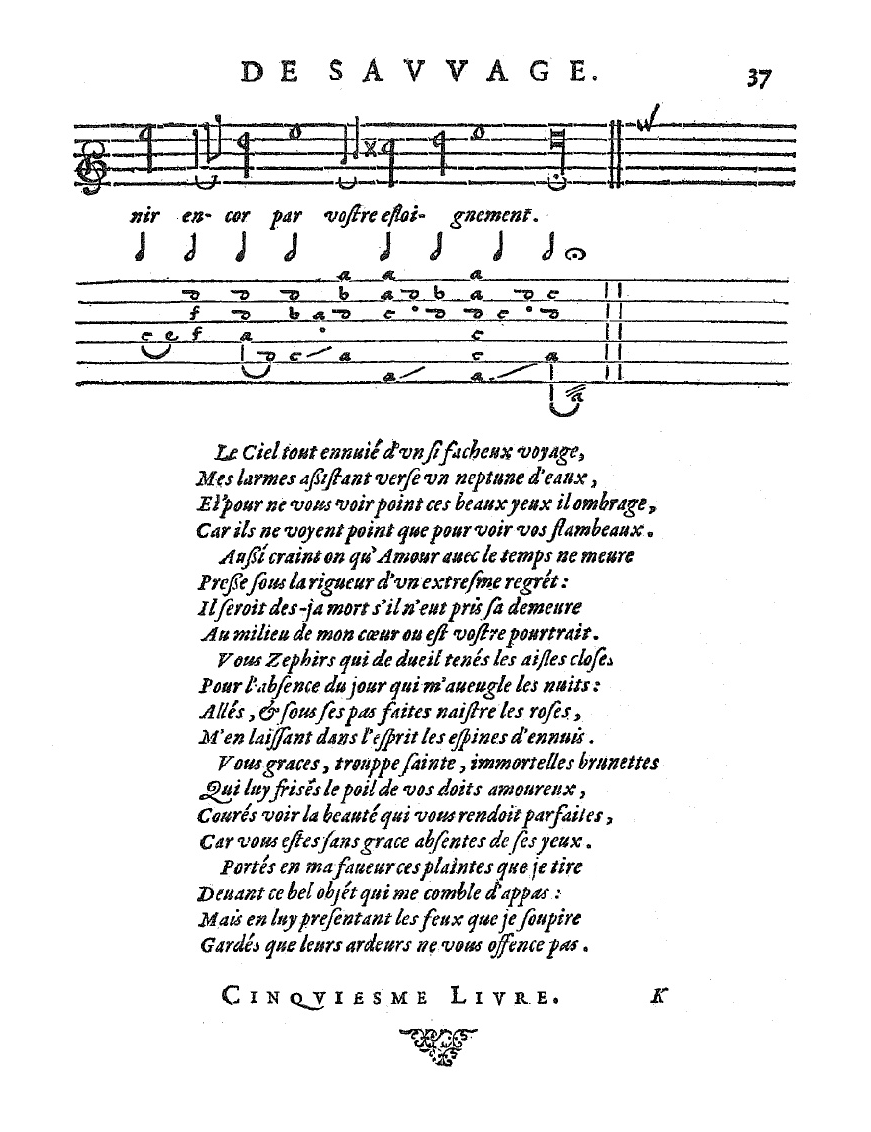 DE SAVVAGE. 37
nir en- cor par voſtre eſloi- gnement.
a a a
ꝺ ꝺ ꝺ b a ꝺ b a ꝺ c
f ꝺ b a ꝺ c ꝺ ꝺ c ꝺ
c e f a c
ꝺ c a c a
a a
a
Le Ciel tout ennuié d'vn ſi facheux voyage,
Mes larmes aßiſtant verſe vn neptune d'eaux,
Et pour ne vous voir point ces beaux yeux il ombrage,
Car ils ne voyent point que pour voir vos flambeaux.
Außi craint on qu'Amour auec le temps ne meure
Preße ſous la rigueur d'vn extreſme regrét:
Il ſeroit des-ja mort s'il n'eut pris ſa demeure
Au milieu de mon cœur ou eſt voſtre pourtrait.
Vous Zephirs qui de dueil tenés les aiſles cloſes
Pour l'abſence du jour qui m'aueugle les nuits:
Allés, & ſous ſes pas faites naiſtre les roſes,
M'en laiſſant dans l'eſprit les eſpines d'ennuis.
Vous graces, trouppe ſainte, immortelles brunettes
Qui luy friſés le poil de vos doits amoureux,
Courés voir la beauté qui vous rendoit parfaites,
Car vous eſtes ſans grace abſentes de ſes yeux.
Portés en ma faueur ces plaintes que je tire
Deuant ce bel objét qui me comble d'appas:
Mais en luy preſentant les feux que je ſoupire
Gardés que leurs ardeurs ne vous offence pas.
CINQVIESME LIVRE. K